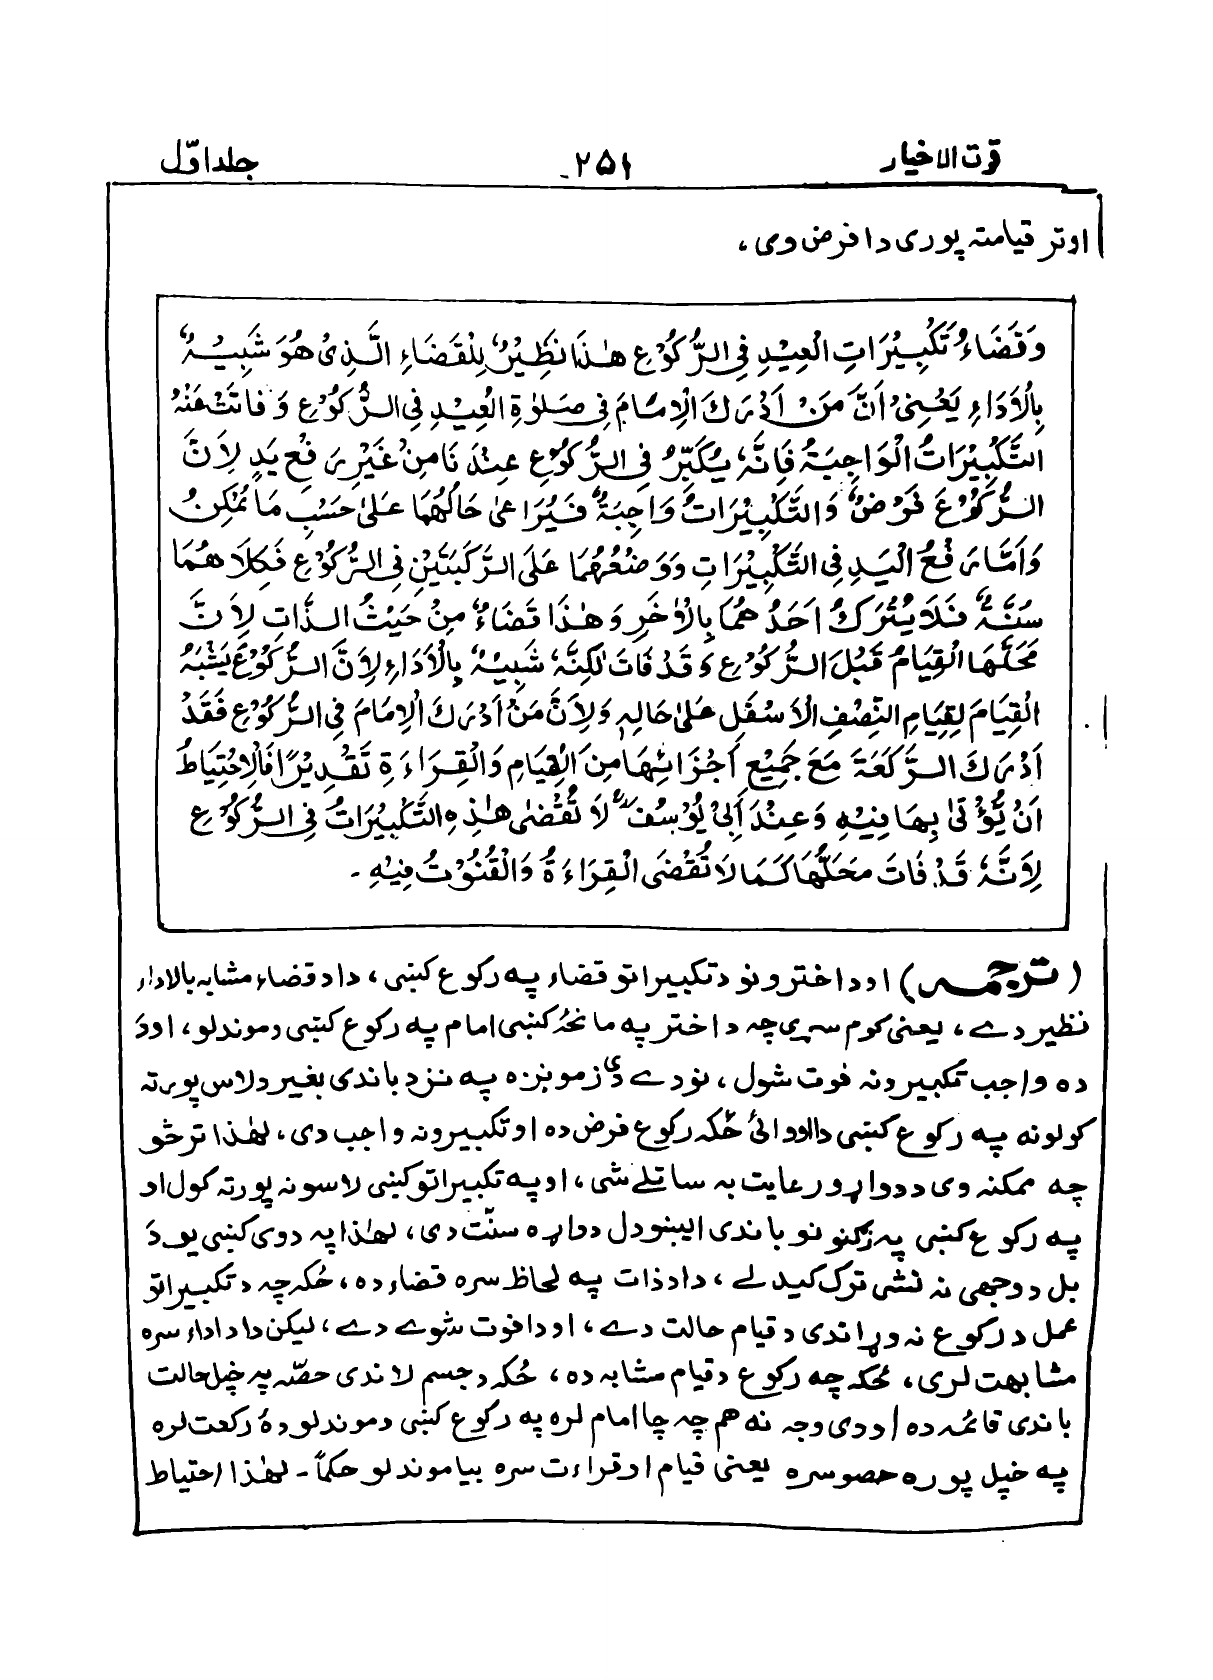 قرت الاخيار ۲۵۱ جلد اوّل
او تر قيامته پوری دا فرض وی،
وَقَضَاءُ تَكْبِيْرَاتِ الْعِيْدِ فِي الرُّكُوْعِ هٰذَا نَظِيْرٌ لِلْقَضَاءِ الَّذِىْ هُوَ شَبِيْهٌ
بِالْاَدَاءِ يَعْنِىْ اَنَّ مَنْ اَدْرَكَ الْاِمَامَ فِى صَلٰوةِ الْعِيْدِ فِى الرُّكُوْعِ وَفَاتَتْ عَنْهُ
التَّكْبِيْرَاتُ الْوَاجِبَةُ فَاِنَّهٗ يُكَبِّرُ فِى الرُّكُوْعِ عِنْدَنَا مِنْ غَيْرِ رَفْعِ يَدٍ لِاَنَّ
الرُّكُوْعَ فَرْضٌ وَالتَّكْبِيْرَاتُ وَاجِبَةٌ فَيُرَاعىٰ حَالُهُمَا عَلىٰ حَسْبِ مَا يُمْكِنُ
وَاَمَّا رَفْعُ الْيَدِ فِى التَّكْبِيْرَاتِ وَوَضْعُهُمَا عَلَى الرُّكْبَتَيْنِ فِى الرُّكُوْعِ فَكِلَاهُمَا
سُنَّةٌ فَلَا يُتْرَكُ اَحَدُهُمَا بِالْاٰخَرِ وَهٰذَا قَضَاءٌ مِنْ حَيْثُ الذَّاتِ لِاَنَّ
مَحَلَّهَا الْقِيَامُ قَبْلَ الرُّكُوْعِ وَقَدْ فَاتَ لٰكِنَّهٗ شَبِيْهٌ بِالْاَدَاءِ لِاَنَّ الرُّكُوْعَ يَشْبَهُ
الْقِيَامَ لِقِيَامِ النِّصْفِ الْاَسْفَلِ عَلىٰ حَالِهٖ وَلِاَنَّ مَنْ اَدْرَكَ الْاِمَامَ فِى الرُّكُوْعِ فَقَدْ
اَدْرَكَ الرَّكْعَةَ مَعَ جَمِيْعِ اَجْزَائِهَا مِنَ الْقِيَامِ وَالْقِرَاءَةِ تَقْدِيْرًا فَالْاِحْتِيَاطُ
اَنْ يُّؤْتىٰ بِهَا فِيْهِ وَعِنْدَ اَبِىْ يُوْسُفَ لَا تُقْضٰى هٰذِهِ التَّكْبِيْرَاتُ فِى الرُّكُوْعِ
لِاَنَّهٗ قَدْ فَاتَ مَحَلُّهَا كَمَا لَا تُقْضَى الْقِرَاءَةُ وَالْقُنُوْتُ فِيْهِ۔
(ترجمہ) او د اخترونو د تکبیراتو قضاء په رکوع کښی، دا د قضاء مشابه بالاداء
نظیر دے، یعنی کوم سړی چه د اختر په مانځه کښی امام په رکوع کښی وموندلو، او دَ
ده واجب تکبیرونه فوت شول، نو دے دی زمونږه په نزد باندی بغیر د لاس پورته
کولونه په رکوع کښی دا ووائی ځکه رکوع فرض ده او تکبیرونه واجب دی، لهٰذا ترڅو
چه ممکنه وی د دواړو رعایت به ساتلے شی، او په تکبیراتو کښی لاسونه پورته کول او
په رکوع کښی په زنګنونو باندی ایښودل دواړه سنّت دی، لهٰذا په دوی کښی یو دَ
بل د وجهی نه نشی ترک کیدلے، دا د ذات په لحاظ سره قضاء ده، ځکه چه د تکبیراتو
عمل د رکوع نه وړاندی د قیام حالت دے، او دا فوت شوے دے، لیکن دا د اداء سره
مشابهت لری، ځکه چه رکوع د قیام مشابه ده، ځکه د جسم لاندی حصّه په خپل حالت
باندی قائمه ده او د دی وجه نه هم چه چا امام لره په رکوع کښی وموندلو دهٔ رکعت لره
په خپل پوره حصو سره یعنی قیام او قراءت سره بیا موندلو حکماً۔ لهٰذا احتیاط